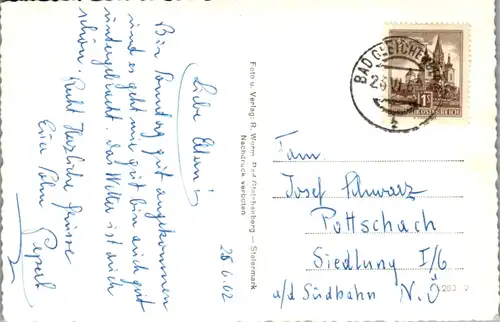 Liebe Eltern!
Bin Sonntag gut angekommen
und es geht mir gut bin auch gut
untergebracht. das Wetter ist auch
schön. Recht Herzliche Grüsse
Euer Sohn
Pepert
25.6.62
Foto u. Verlag: R. Wurm, Bad Gleichenberg — Steiermark
Nachdruck verboten
BAD GLEICHEN
1S
ÖSTERREICH
Fam.
Josef Schwarz
Pottschach
Siedlung I/6
a/d Südbahn N.Ö